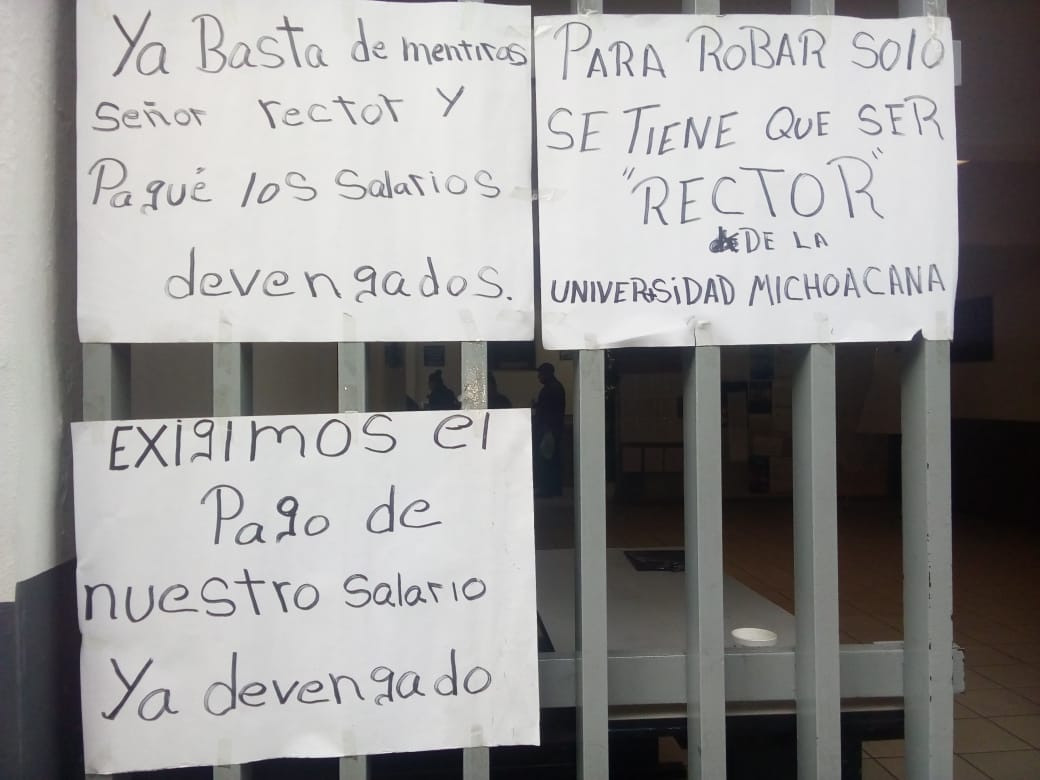 Ya Basta de mentiras
señor rector y
Pagué los salarios
devengados.
PARA ROBAR SOLO
SE TIENE QUE SER
"RECTOR"
DE LA
UNIVERSIDAD MICHOACANA
EXigimos el
Pago de
nuestro salario
Ya devengado